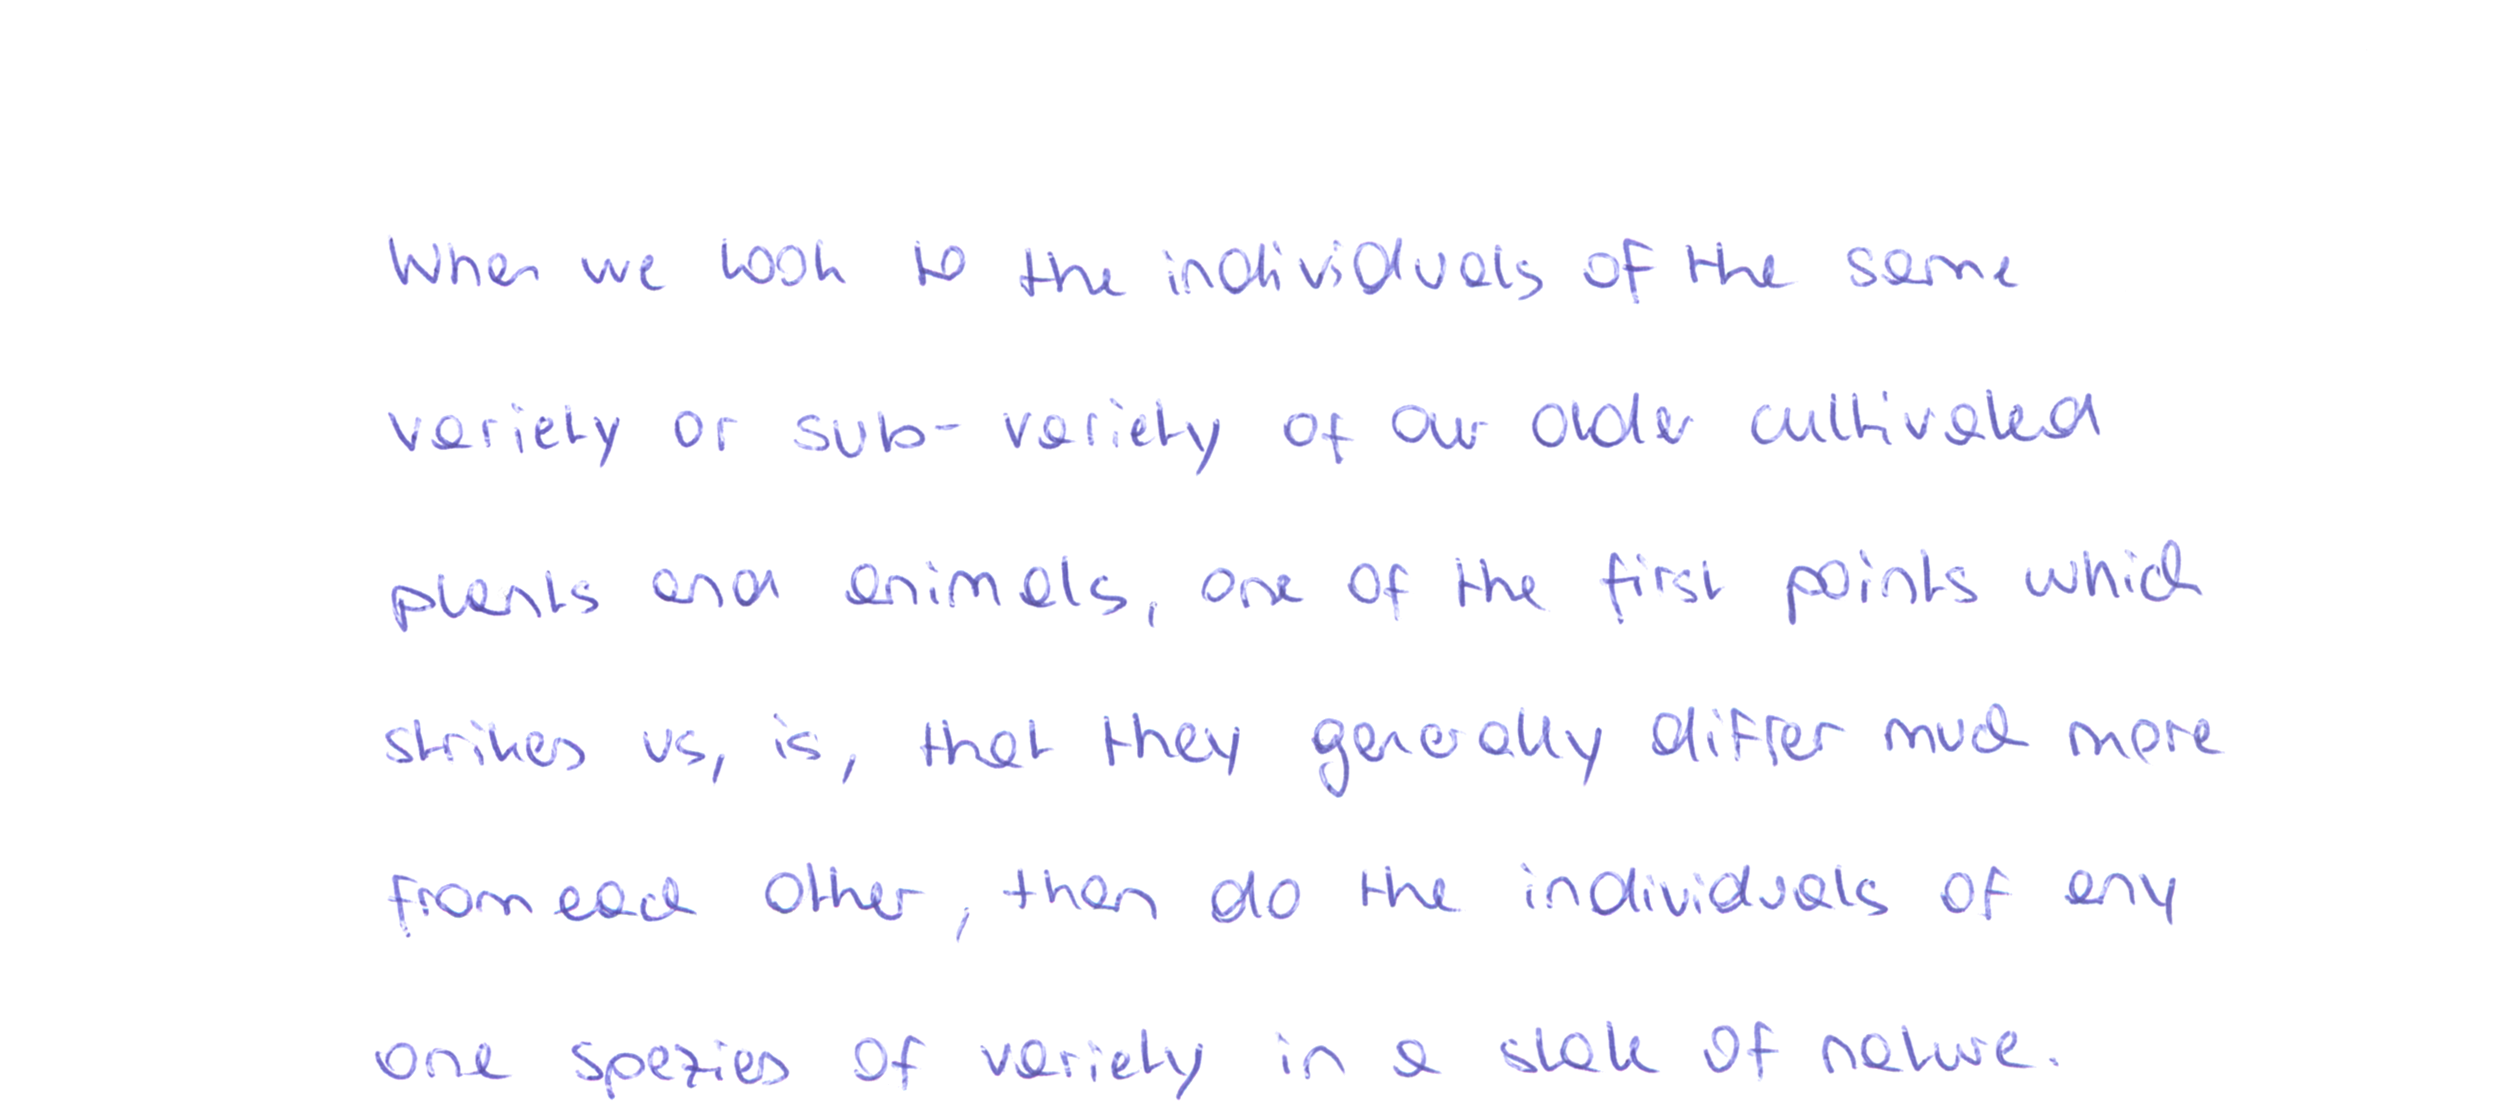 When we look to the individuals of the same
variety or sub-variety of our older cultivated
plants and animals, one of the first points which
strikes us, is, that they generally differ much more
from each other, than do the individuals of any
one spezies of variety in a state of nature.